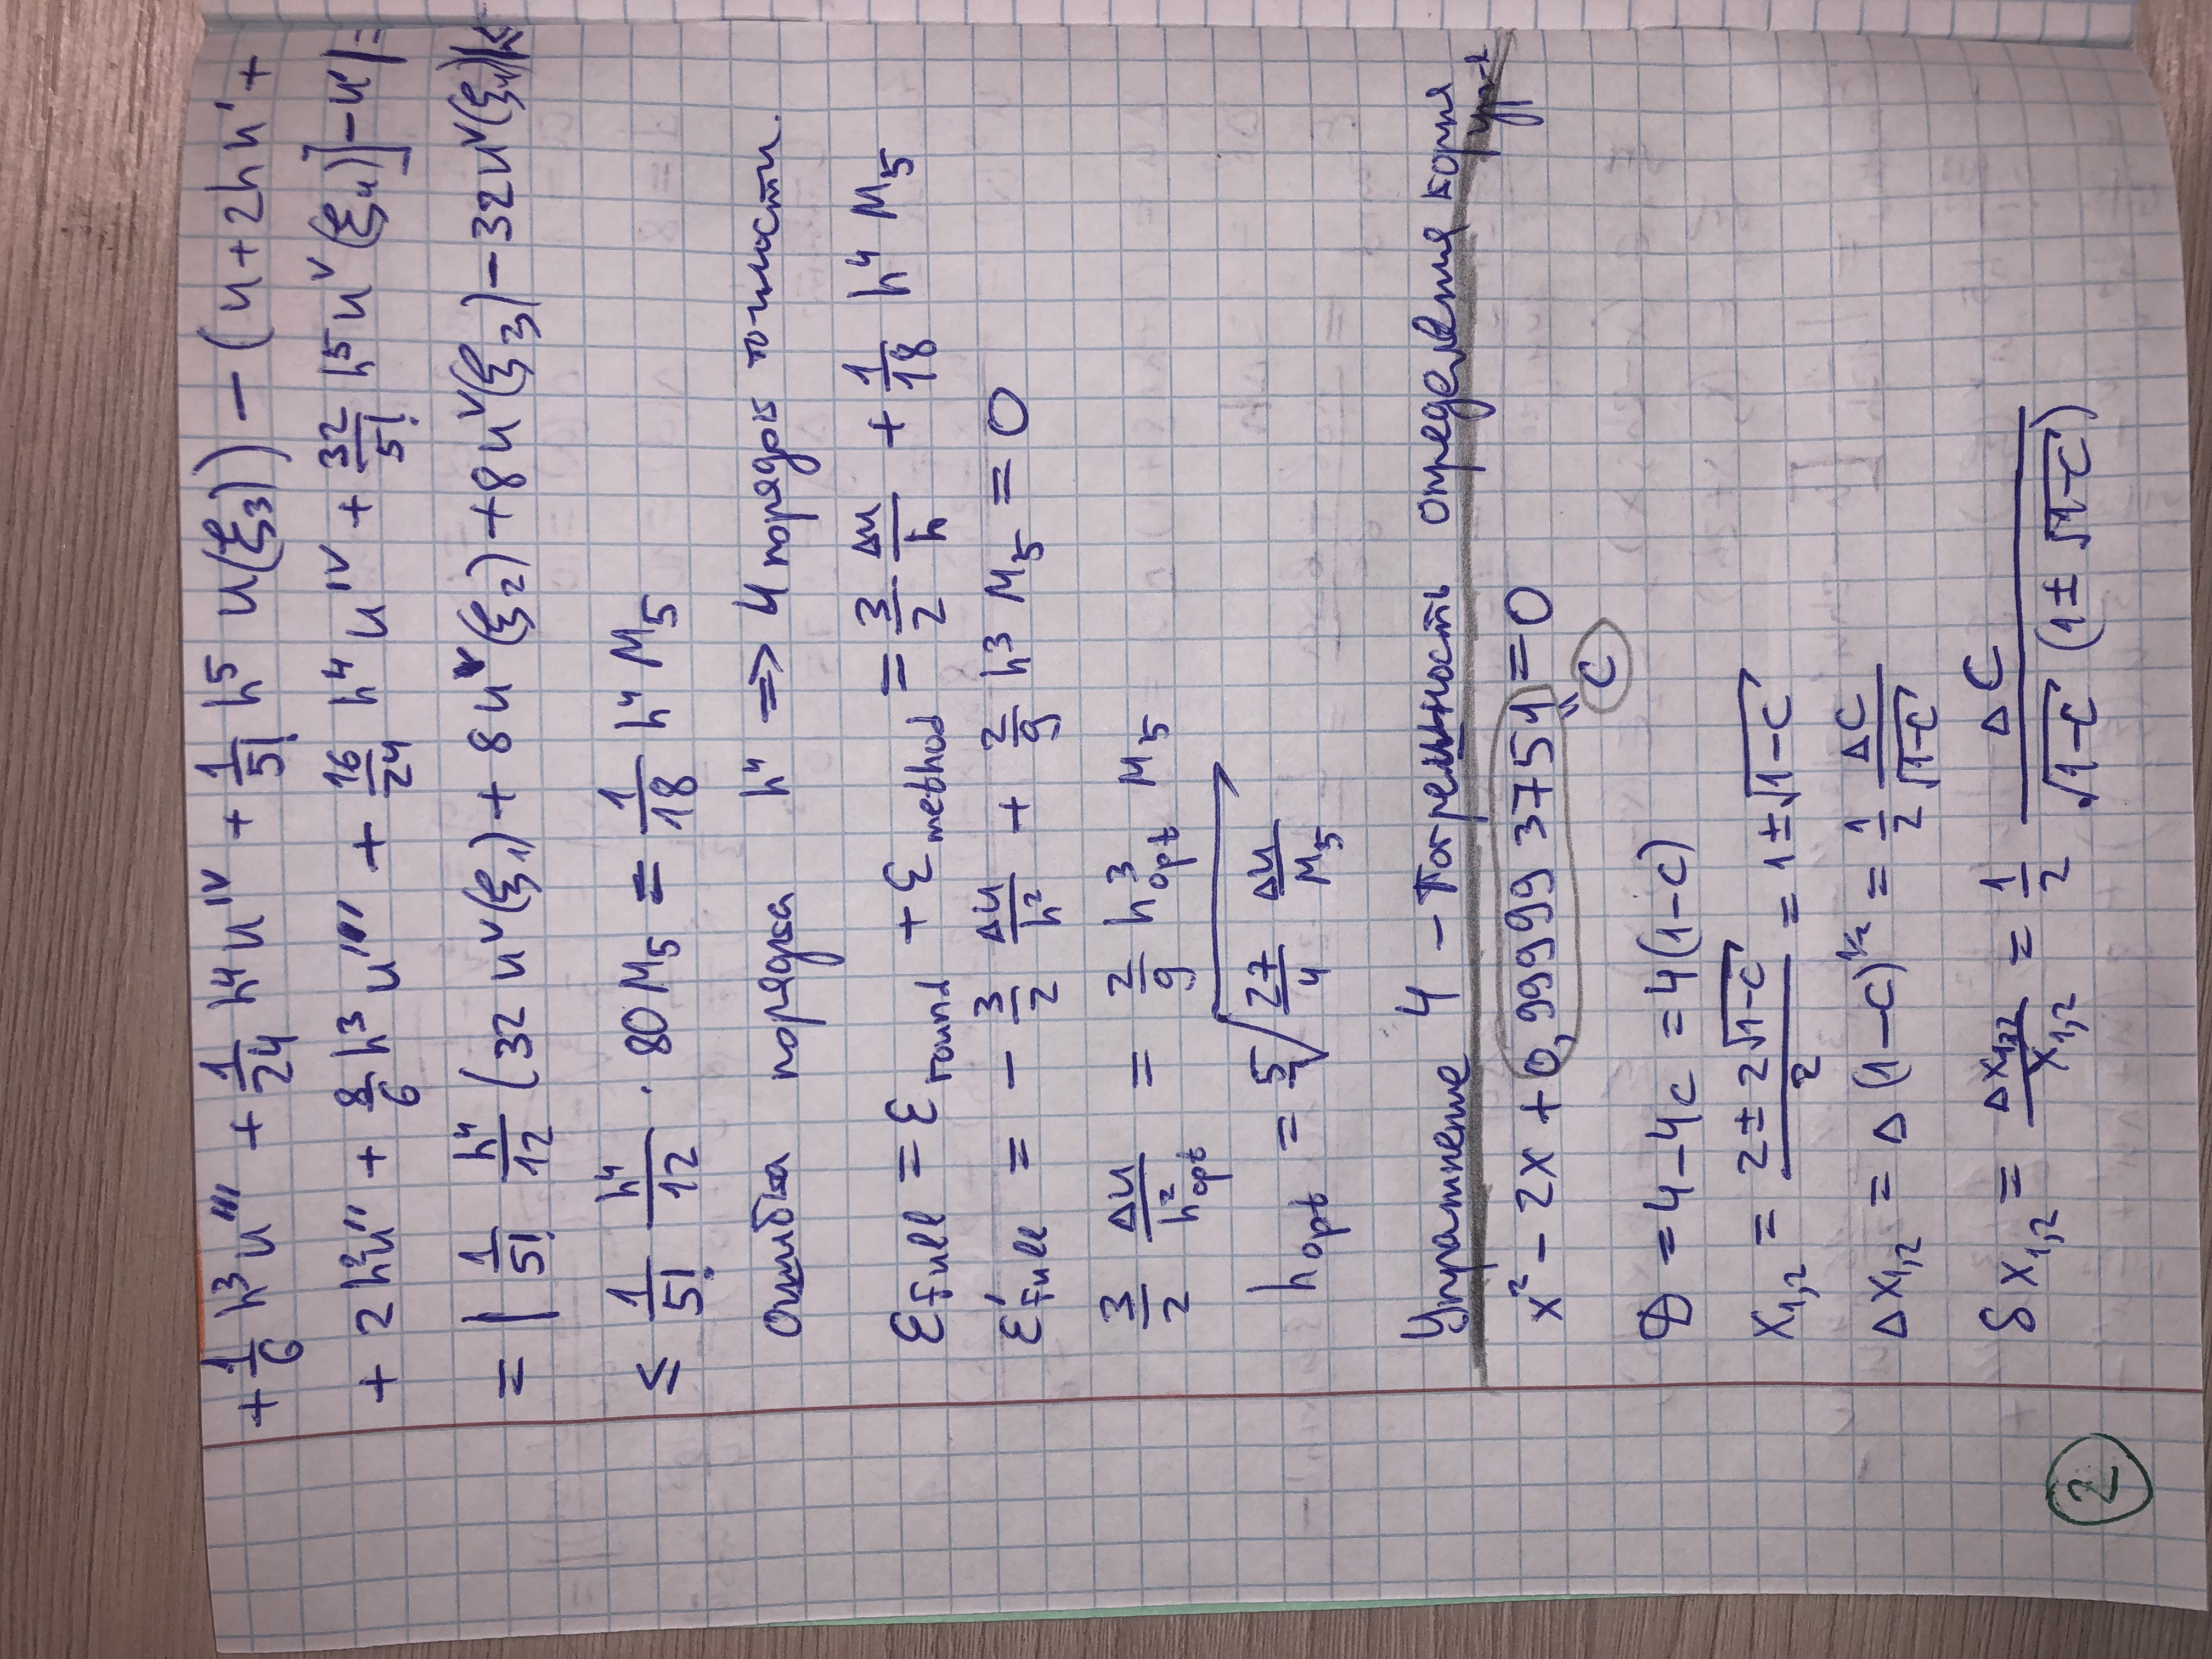 + 1/6 h³ u''' + 1/24 h⁴ u^IV + 1/5! h⁵ u(ξ₃)) − (u + 2hu' +
+ 2h²u'' + 8/6 h³ u''' + 16/24 h⁴ u^IV + 32/5! h⁵ u^V (ξ₄)] − u'| =
= | 1/5! h⁴/12 (32 u^V(ξ₁) + 8u^V(ξ₂) + 8u^V(ξ₃) − 32u^V(ξ₄)| ≤
≤ 1/5! h⁴/12 · 80 M₅ = 1/18 h⁴ M₅
Ошибка порядка h⁴ ⇒ 4 порядок точности.
ε_full = ε_round + ε_method = 3/2 Δu/h + 1/18 h⁴ M₅
ε'_full = − 3/2 Δu/h² + 2/9 h³ M₅ = 0
3/2 Δu/h²_opt = 2/9 h³_opt M₅
h_opt = ⁵√(27/4 Δu/M₅)
Упражнение 4 – Погрешность определения корня ур-я
x² − 2x + 0,99999 3751 = 0
" c
D = 4 − 4c = 4(1−c)
x₁,₂ = (2 ± 2√(1−c))/2 = 1 ± √(1−c)
Δx₁,₂ = Δ (1−c)^½ = 1/2 ΔC/√(1−c)
δx₁,₂ = Δx₁,₂/x₁,₂ = 1/2 ΔC/(√(1−c) (1 ± √(1−c)))
2